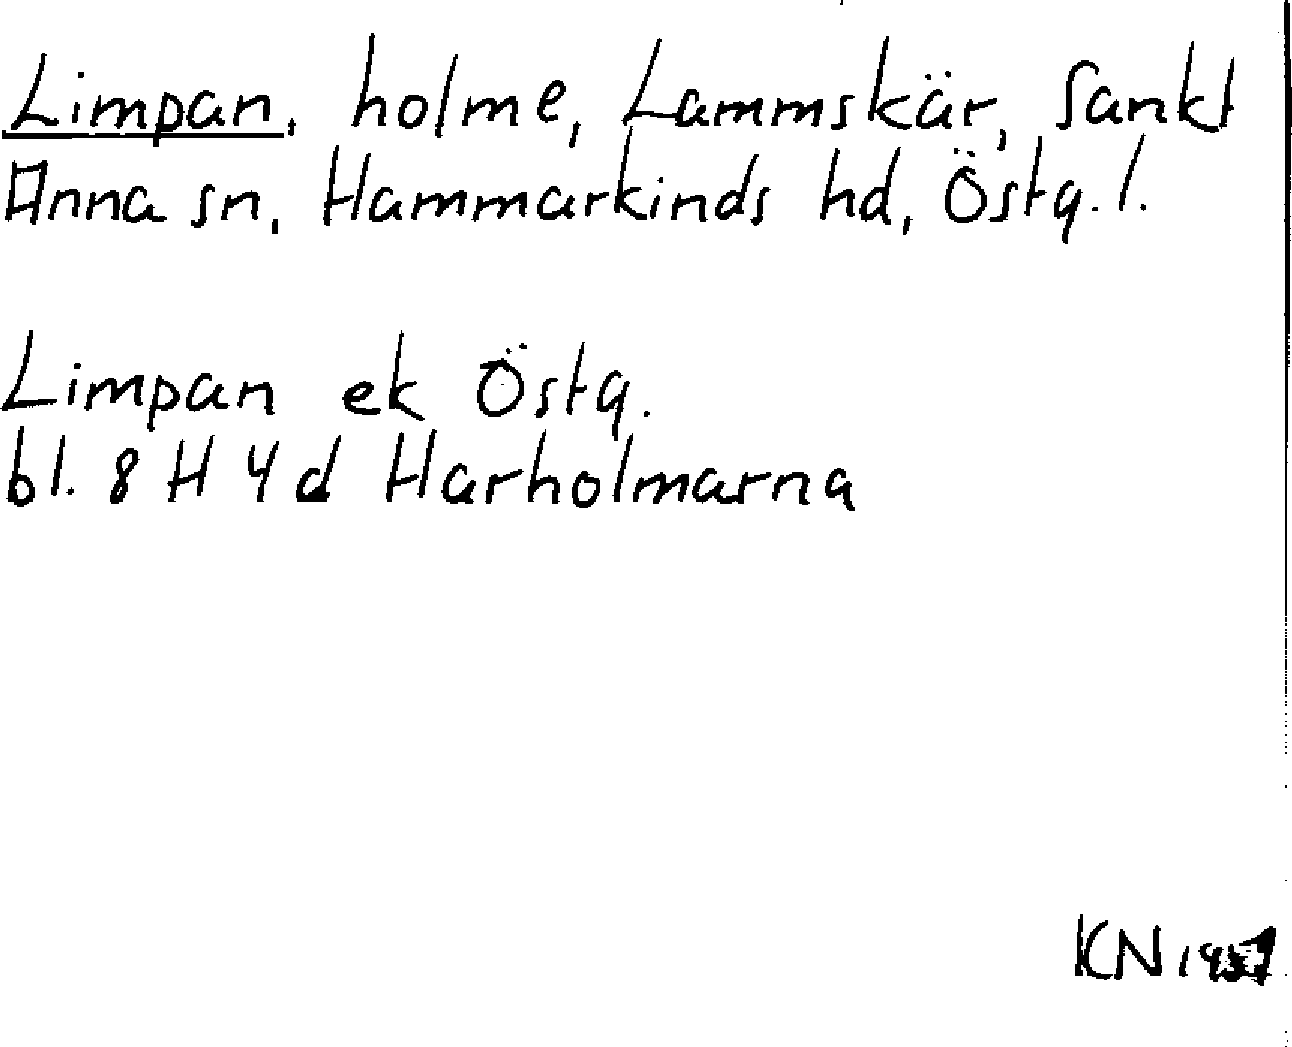 Limpan, holme, Lammskär, Sankt
Anna sn, Hammarkinds hd, Östg.l.
Limpan ek Östg.
bl. 8 H 4 d Harholmarna
KN